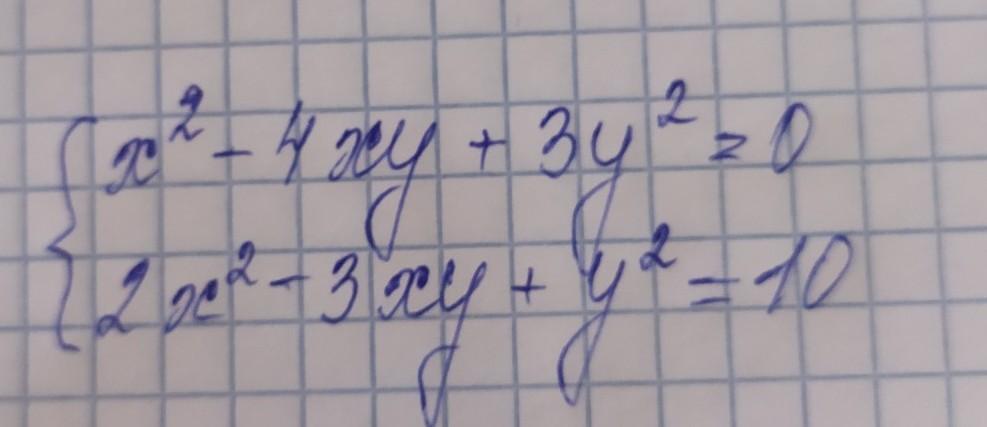 x² - 4xy + 3y² = 0
2x² - 3xy + y² = 10